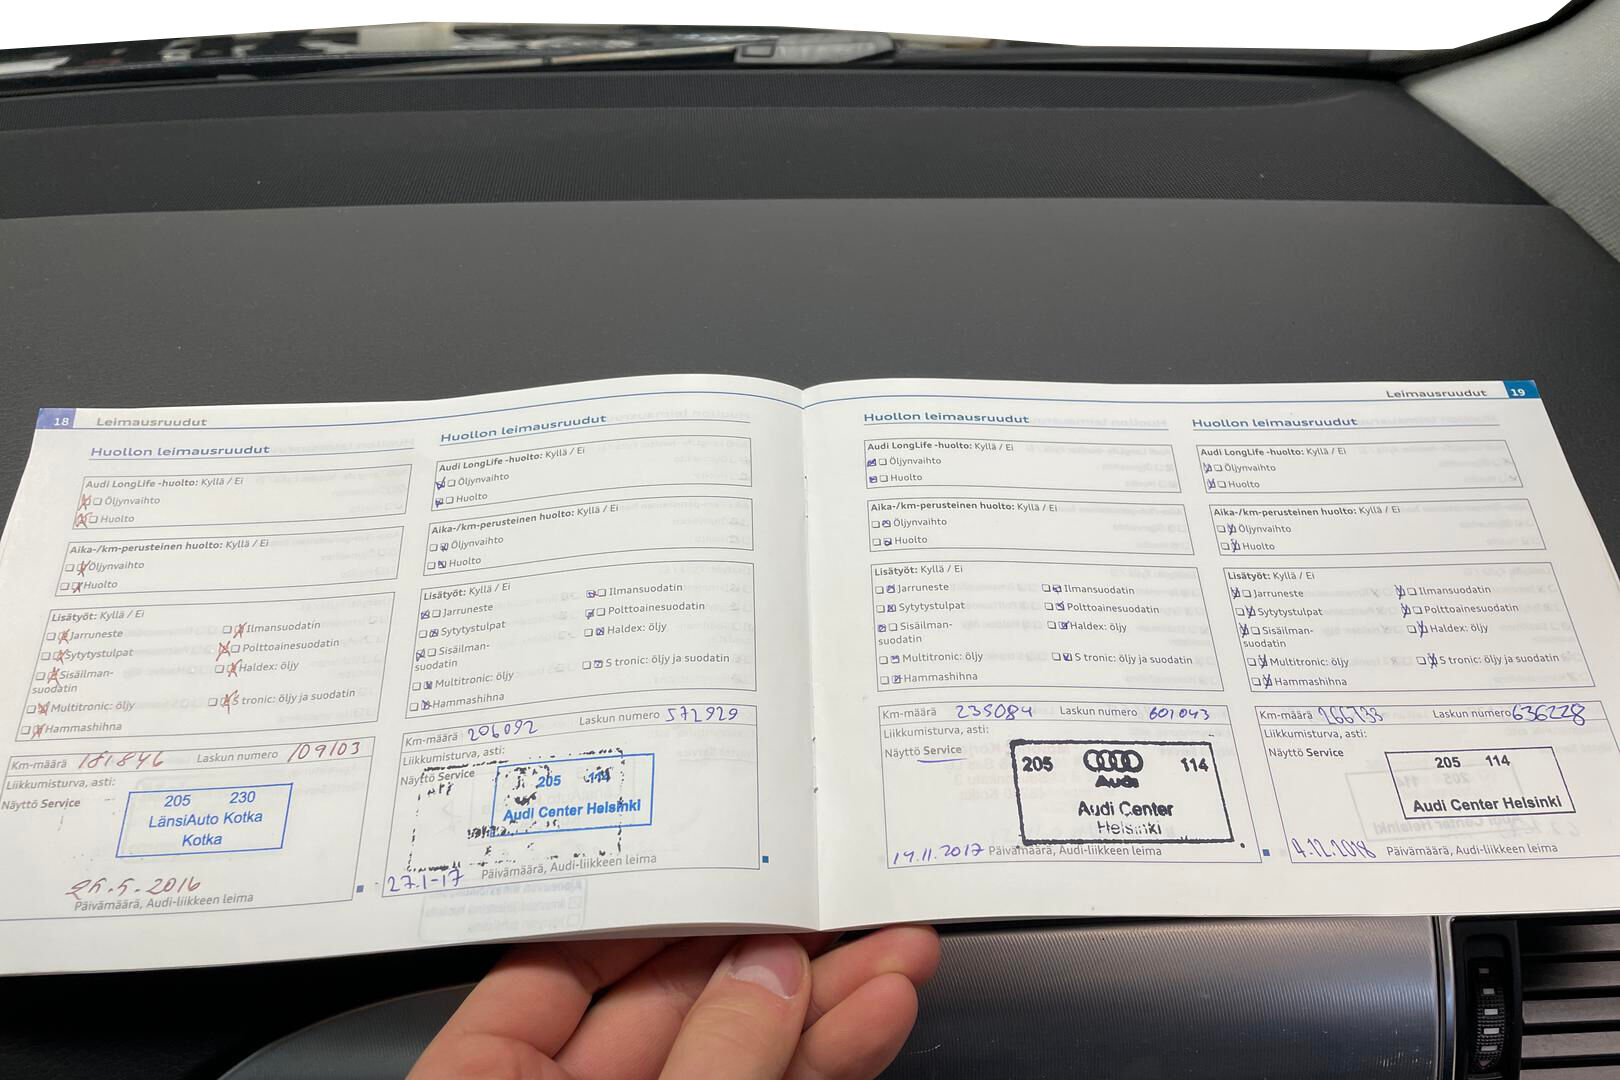 18 Leimausruudut
Huollon leimausruudut
Audi LongLife -huolto: Kyllä / Ei
Öljynvaihto
Huolto
Aika-/km-perusteinen huolto: Kyllä / Ei
Öljynvaihto
Huolto
Lisätyöt: Kyllä / Ei
Jarruneste
Sytytystulpat
Sisäilman-
suodatin
Multitronic: öljy
Hammashihna
Ilmansuodatin
Polttoainesuodatin
Haldex: öljy
S tronic: öljy ja suodatin
Km-määrä 181846 Laskun numero 109103
Liikkumisturva, asti:
Näyttö Service
205 230
LänsiAuto Kotka
Kotka
25.5.2016
Päivämäärä, Audi-liikkeen leima
Huollon leimausruudut
Audi LongLife -huolto: Kyllä / Ei
Öljynvaihto
Huolto
Aika-/km-perusteinen huolto: Kyllä / Ei
Öljynvaihto
Huolto
Lisätyöt: Kyllä / Ei
Jarruneste
Sytytystulpat
Sisäilman-
suodatin
Multitronic: öljy
Hammashihna
Ilmansuodatin
Polttoainesuodatin
Haldex: öljy
S tronic: öljy ja suodatin
Km-määrä 206092 Laskun numero 572929
Liikkumisturva, asti:
Näyttö Service
205 114
Audi Center Helsinki
27.1-17 Päivämäärä, Audi-liikkeen leima
Leimausruudut 19
Huollon leimausruudut
Audi LongLife -huolto: Kyllä / Ei
Öljynvaihto
Huolto
Aika-/km-perusteinen huolto: Kyllä / Ei
Öljynvaihto
Huolto
Lisätyöt: Kyllä / Ei
Jarruneste
Sytytystulpat
Sisäilman-
suodatin
Multitronic: öljy
Hammashihna
Ilmansuodatin
Polttoainesuodatin
Haldex: öljy
S tronic: öljy ja suodatin
Km-määrä 235084 Laskun numero 601043
Liikkumisturva, asti:
Näyttö Service
205 114
Audi
Audi Center
Helsinki
14.11.2017 Päivämäärä, Audi-liikkeen leima
Huollon leimausruudut
Audi LongLife -huolto: Kyllä / Ei
Öljynvaihto
Huolto
Aika-/km-perusteinen huolto: Kyllä / Ei
Öljynvaihto
Huolto
Lisätyöt: Kyllä / Ei
Jarruneste
Sytytystulpat
Sisäilman-
suodatin
Multitronic: öljy
Hammashihna
Ilmansuodatin
Polttoainesuodatin
Haldex: öljy
S tronic: öljy ja suodatin
Km-määrä 266733 Laskun numero 636228
Liikkumisturva, asti:
Näyttö Service
205 114
Audi Center Helsinki
4.12.2018 Päivämäärä, Audi-liikkeen leima